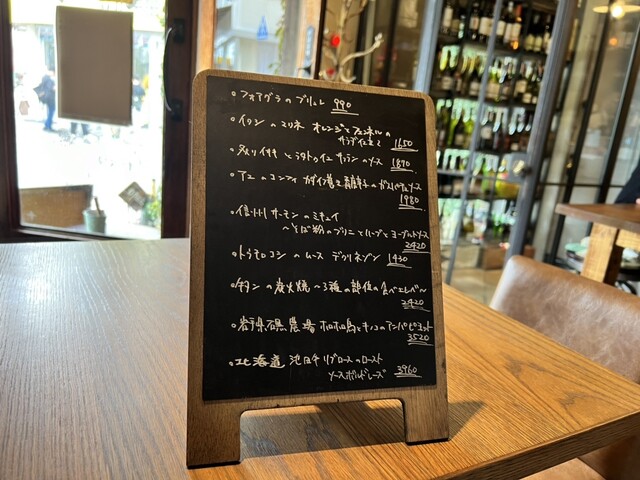 ・フォアグラのブリュレ 990
・イワシのマリネ オレンジとフェネルの
サラダ仕立て 1650
・炙りイサキとラタトゥイユ サフランのソース 1870
・アユのコンフィ ガスパチョソース
1980
・信州サーモンのミキュイ
〜そば粉のブリニとハーブとヨーグルトソース
2420
・トウモロコシのムース デクリネゾン 1430
・牛タンの炭火焼〜3種の部位の食べ比べ〜
2420
・岩手県石黒農場 ホロホロ鳥とキノコのアンバピヨット
3520
・北海道 池田牛 リブロースのロースト
ソースボルドレーズ 3960